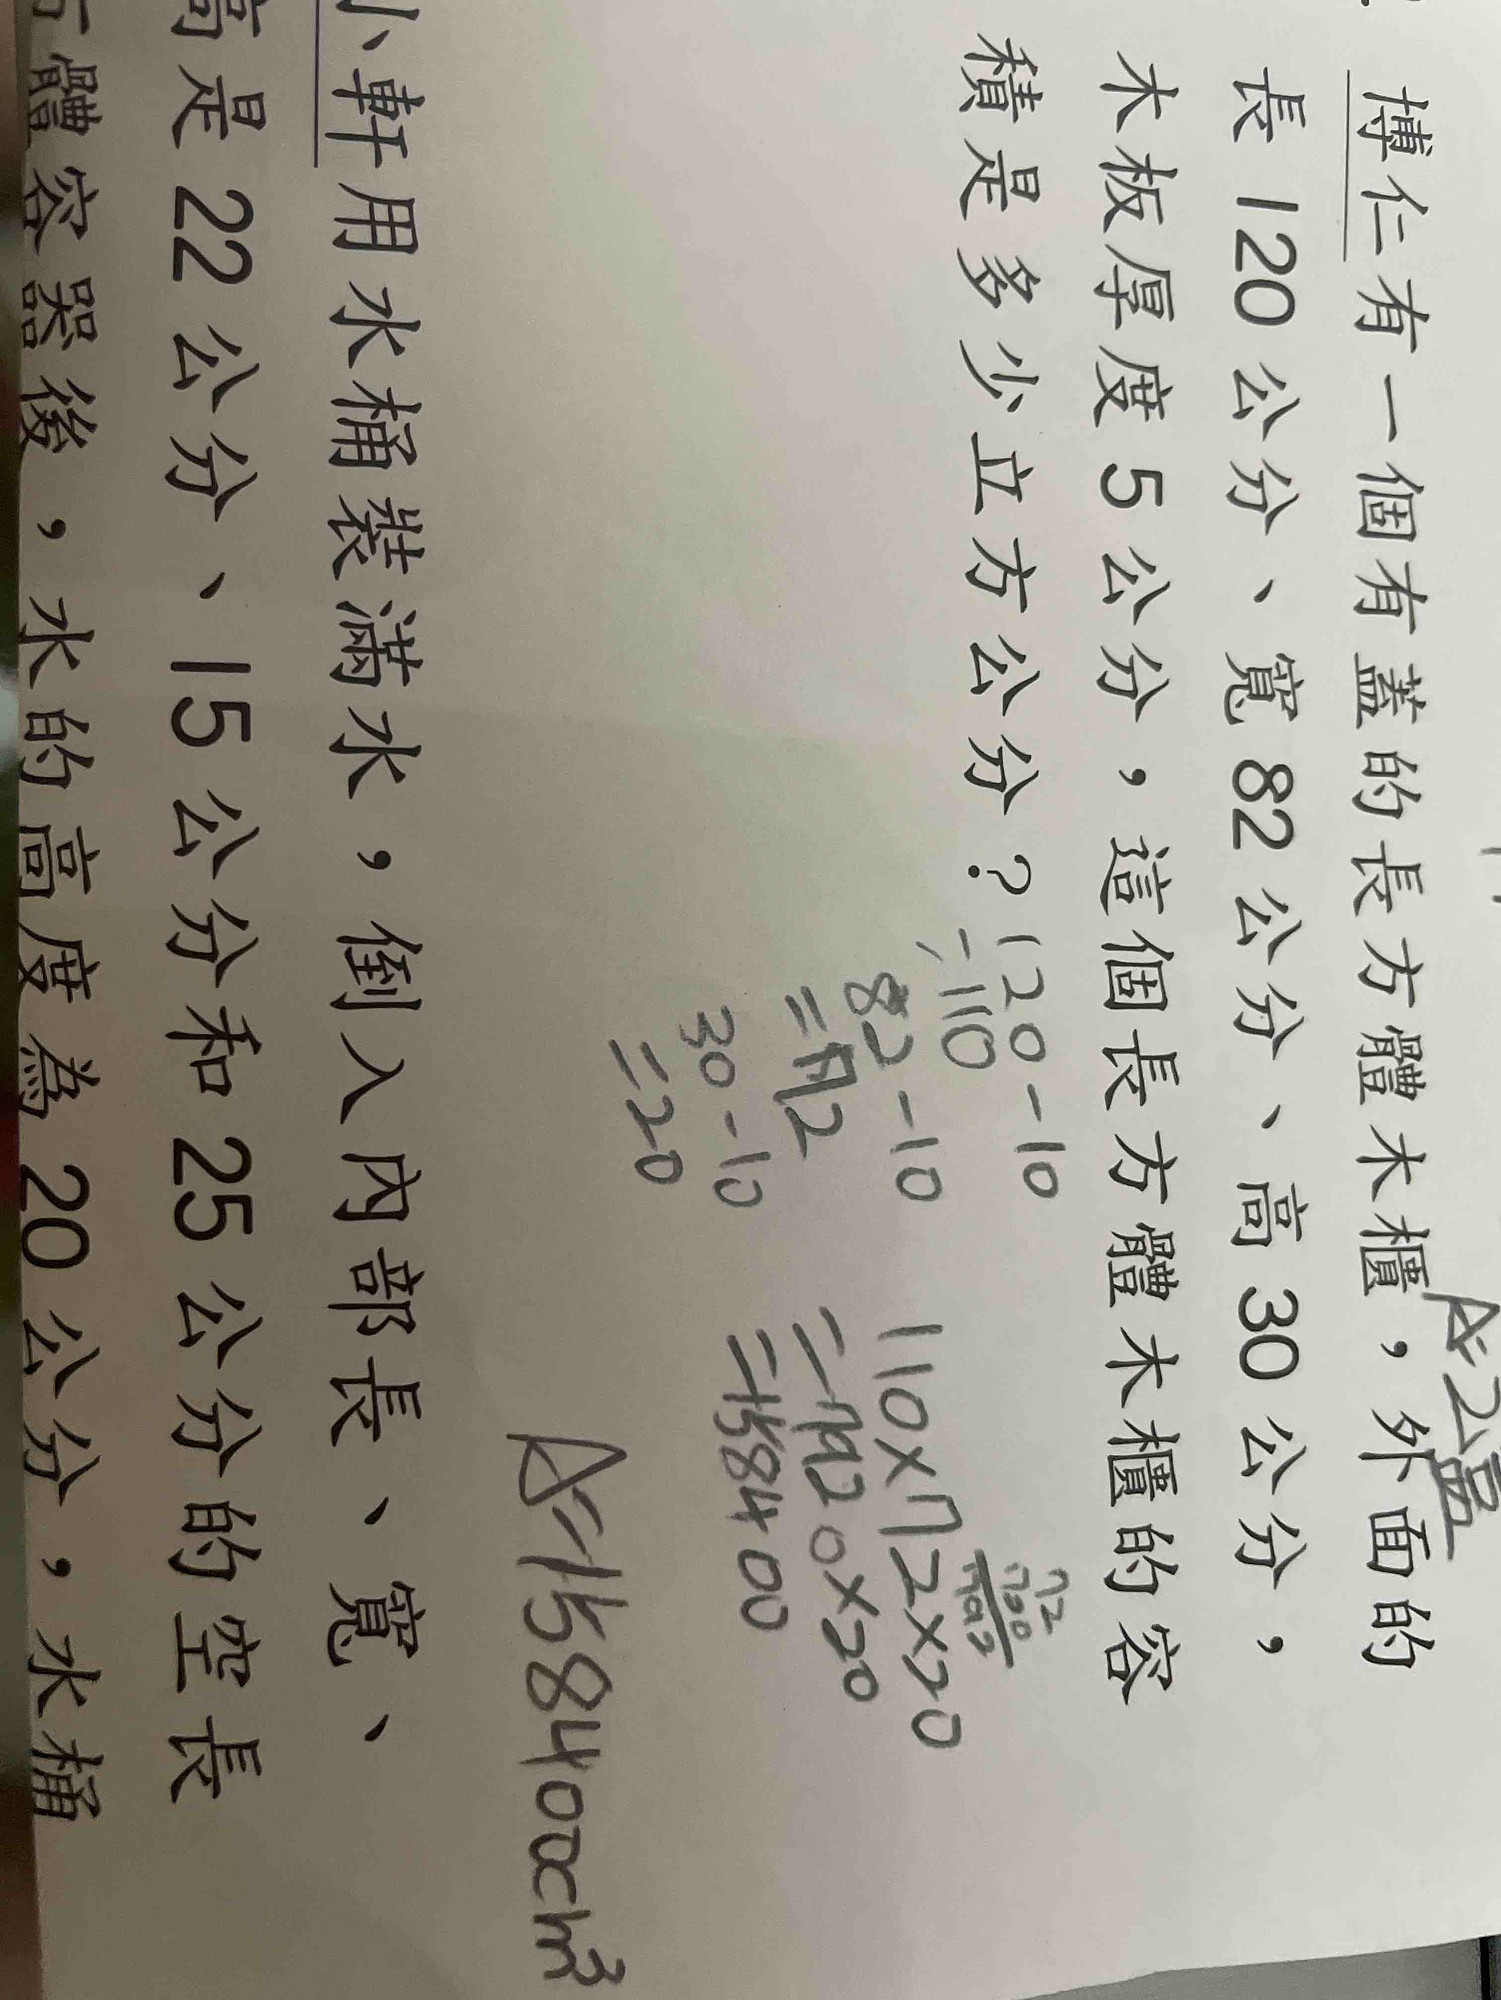 A:2盒
博仁有一個有蓋的長方體木櫃，外面的
長120公分、寬82公分、高30公分，
木板厚度5公分，這個長方體木櫃的容
積是多少立方公分？
120-10
=110
82-10
=72
30-10
=20
72
720
7920
110×72×20
=7920×20
=158400
A=158400cm³
小軒用水桶裝滿水，倒入內部長、寬、
高是22公分、15公分和25公分的空長
方體容器後，水的高度為20公分，水桶